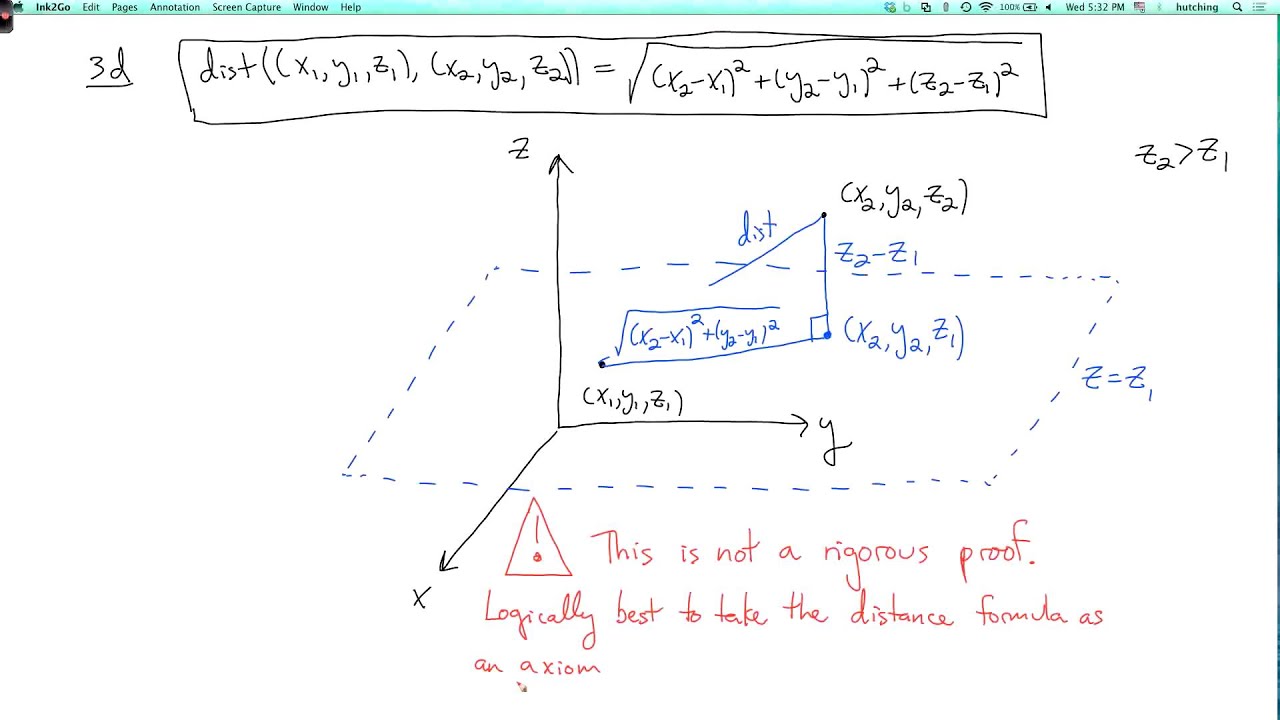 Ink2Go Edit Pages Annotation Screen Capture Window Help 100% Wed 5:32 PM hutching
3d dist((x₁,y₁,z₁),(x₂,y₂,z₂)) = √((x₂-x₁)²+(y₂-y₁)²+(z₂-z₁)²)
z
z₂>z₁
(x₂,y₂,z₂)
dist
z₂-z₁
√((x₂-x₁)²+(y₂-y₁)²)
(x₂,y₂,z₁)
z=z₁
(x₁,y₁,z₁)
y
!
This is not a rigorous proof.
x
Logically best to take the distance formula as
an axiom